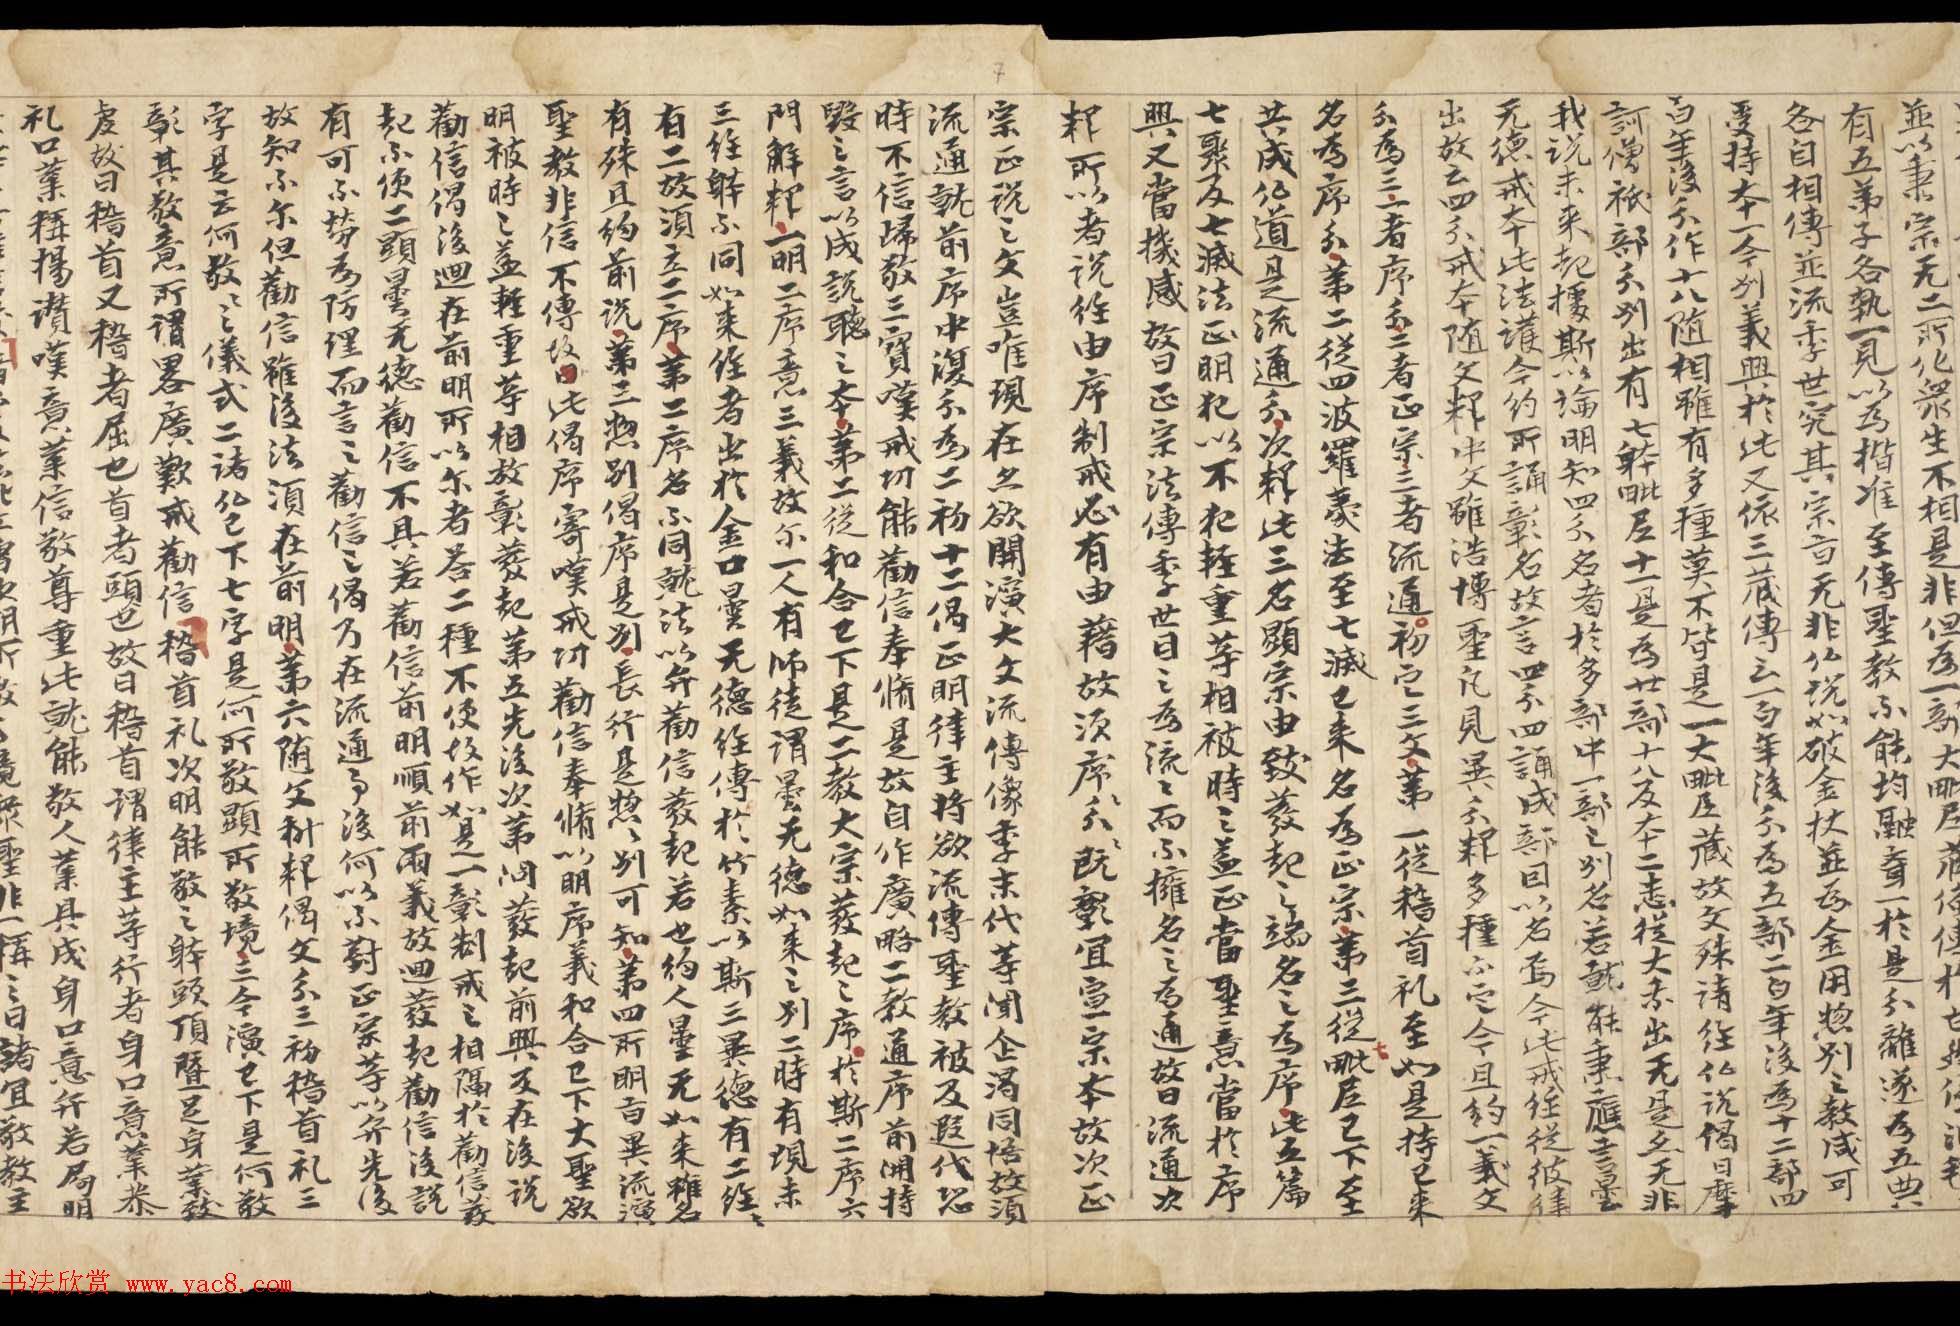 並以秉宗无二所化衆生不相是非但為一部大毗尼藏
有五弟子各執一見以為揩准至傳聖教不能均融奪一於是分離遂為五典
各自相傳並流季世究其宗旨无非仏說如破金杖並為金用惣別之教咸可
受持本一今別義興於此又依三藏傳云一百年後分為五部二百年後為十二部四
百年後分作十八随相雖有多種莫不皆是一大毗尼藏故文殊請經仏說偈曰摩
訶僧祇部分別出有七躰毗尼十一是為廿部十八及本二悉從大乘出无是亦无非
我說未來起據斯以論明知四分名者於多部中一部之別名若就能秉應言曇
无德戒本此法護今約所誦彰名故言四分四誦成部目以名焉今此戒經從彼律
出故云四分戒本随文釋中文雖浩博聖凡見異分釋多種不定今且約一義文
分為三一者序分二者正宗三者流通初定三文第一從稽首礼至如是持已來
名為序分第二從四波羅夷法至七滅已來名為正宗第三從毗尼已下至
共成仏道是流通分次釋此三名顯宗由致發起之端名之為序此五篇
七聚及七滅法正明犯以不犯輕重等相被時之益正當聖意當於序
興又當機感故曰正宗法傳季世目之為流之而不擁名之為通故曰流通次
釋所以者說經由序制戒必有由藉故須序分既彰宜宣宗本故次正
宗正說之文豈唯現在亦欲開演大文流傳像季末代等聞企渴同悟故須
流通就前序中復分為二初十二偈正明律主將欲流傳聖教被及遐代恐
時不信歸敬三寶嘆戒切能勸信奉脩是故自作廣略二教通序前開持
毀之言以成說聽之本第二從和合已下是二教大宗發起之序於斯二序六
門解釋一明二序意三義故尔一人有師徒謂曇无德如來之別二時有現未
三經躰不同如來經者出於金口曇无德經傳於竹素以斯三異德有二經之
有二故須立二序第二序名不同就法以弁勸信發起若也約人曇无如來雖名
有殊且約前說第三惣別偈序是別長行是惣之別可知第四所明旨異流演
聖教非信不傳故曰此偈序寄嘆戒切勸信奉脩以明序義和合已下大聖欲
明被時之益輕重等相故彰發起第五先後次第問發起前興及在後說
勸信偈後迴在前明所以尔者荅二種不便故作如是一彰制戒之相隔於勸信發
起不便二顯曇无德勸信不具若勸信前明順前兩義故迴發起勸信後說
有可不勞為防理而言之勸信之偈乃在流通了後何以不對正宗等以弁先後
故知不尔但勸信雖後法須在前明第六随文料釋偈文分三初稽首礼三
字是云何敬之之儀式二諸仏已下七字是何所敬顯所敬境三今演已下是何敬
彰其敬意所謂畧廣歎戒勸信稽首礼次明能敬之躰頭頂暨足身業致
虔故曰稽首又稽者屈也首者頭也故曰稽首謂律主等行者身口意業恭
礼口業稱揚讚嘆意業信敬尊重此就能敬人業具成身口意行若局明
书法欣赏 www.yac8.com